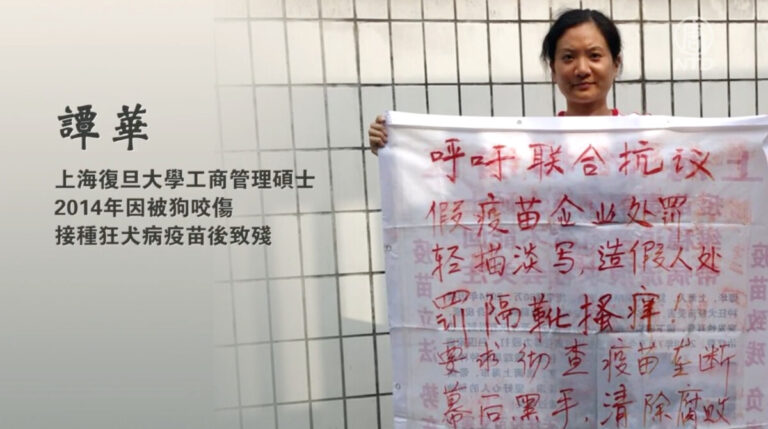 譚華
上海復旦大學工商管理碩士
2014年因被狗咬傷
接種狂犬病疫苗後致殘
呼吁联合抗议
假疫苗企业处罚
轻描淡写,造假人处
罚隔靴搔痒!
要求彻查疫苗垄断
幕后黑手,清除腐败
NTD